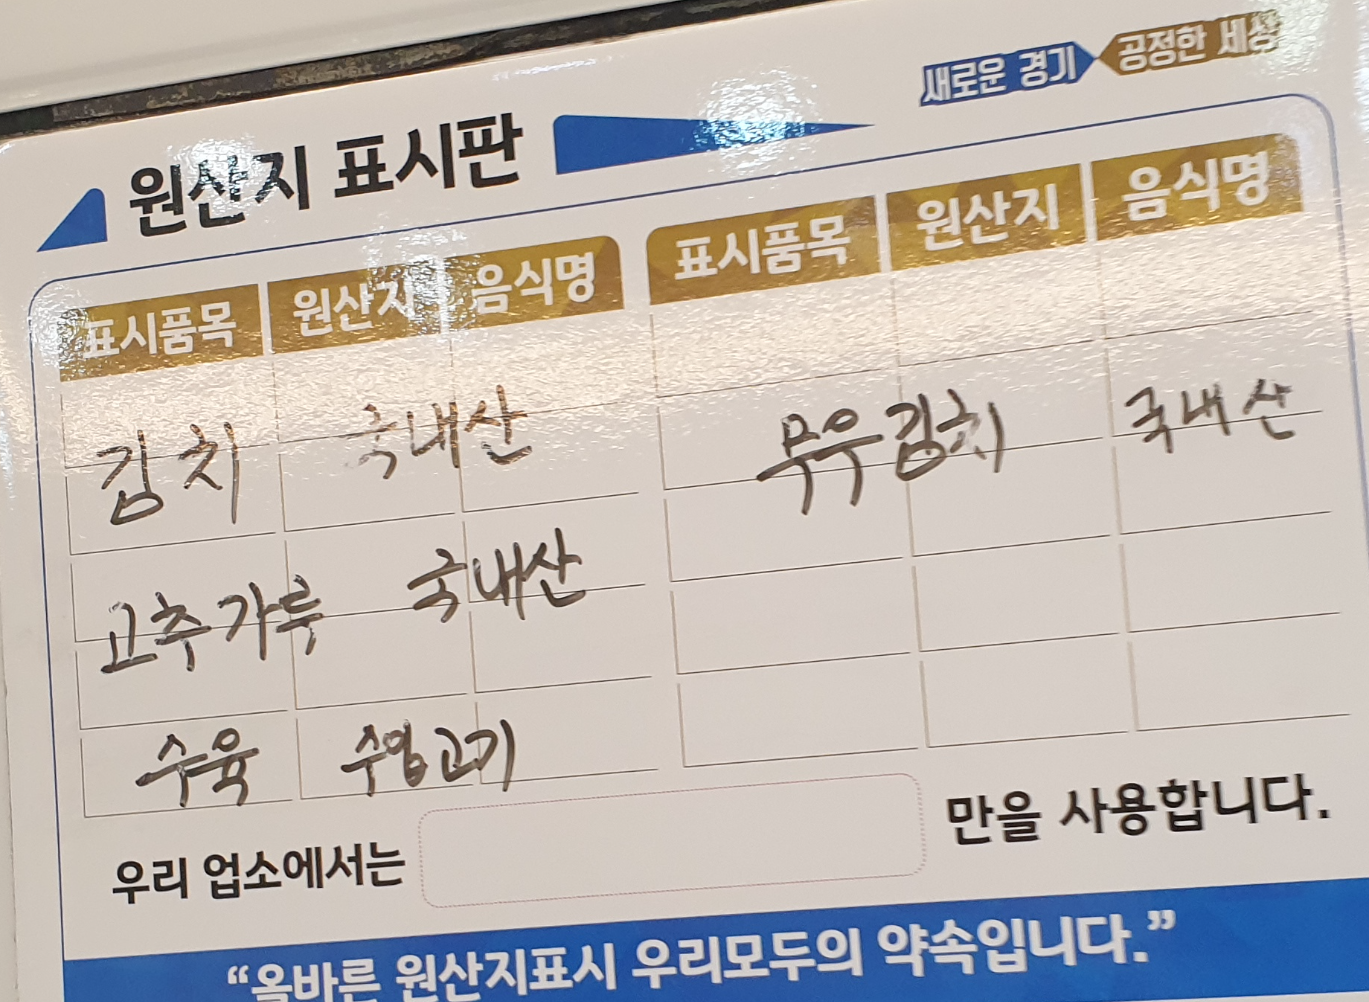 새로운 경기 공정한 세상
원산지 표시판
표시품목 원산지 음식명 표시품목 원산지 음식명
김치 국내산 무우김치 국내산
고추가루 국내산
수육 수입고기
우리 업소에서는 만을 사용합니다.
“올바른 원산지표시 우리모두의 약속입니다.”